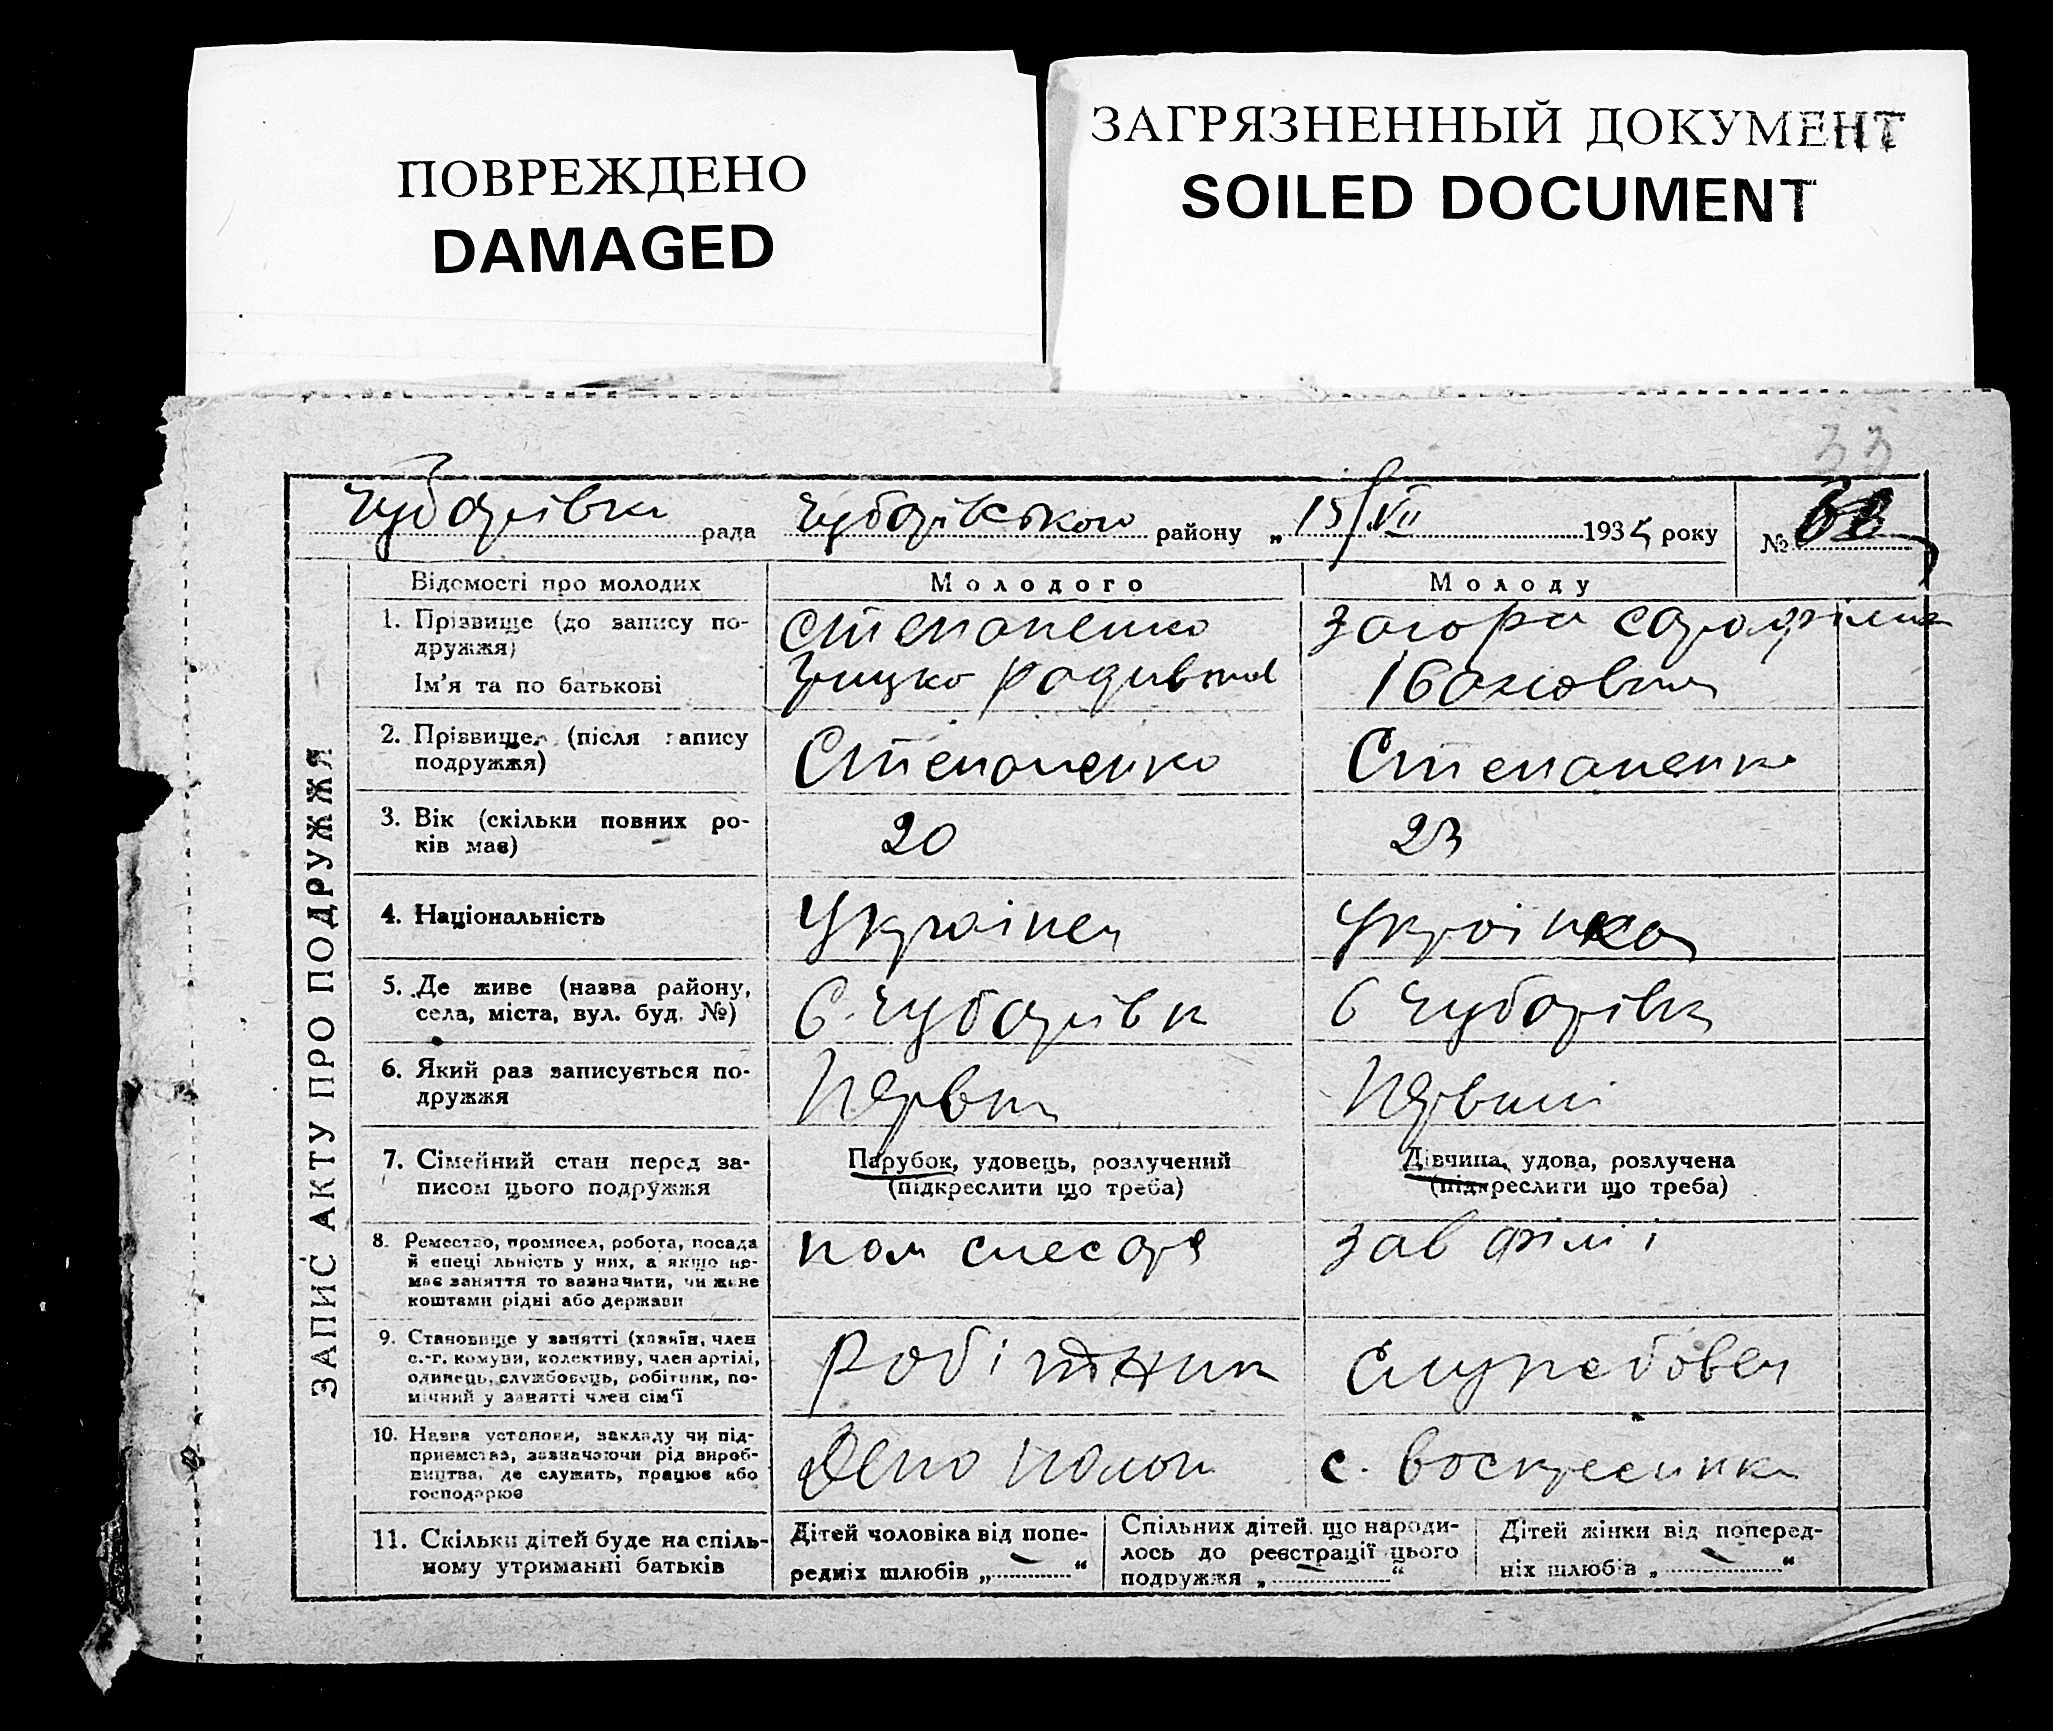 ПОВРЕЖДЕНО
DAMAGED
ЗАГРЯЗНЕННЫЙ ДОКУМЕНТ
SOILED DOCUMENT
33
Чубарівка рада Чубарівського району „15/VII 1935 року №
ЗАПИС АКТУ ПРО ПОДРУЖЖЯ
Відомості про молодих
Молодого
Молоду
1. Прізвище (до запису по-
дружжя)
Ім'я та по батькові
Степаненко
Грицко Родивонов
Загора Серафіма
Івановна
2. Прізвище (після запису
подружжя)
Степаненко
Степаненко
3. Вік (скільки повних ро-
ків має)
20
23
4. Національність
Українец
Українка
5. Де живе (назва району,
села, міста, вул. буд. №)
С. Чубарівк
С Чубарівка
6. Який раз записується по-
дружжя
Первий
Первий
7. Сімейний стан перед за-
писом цього подружжя
Парубок, удовець, розлучений
(підкреслити що треба)
Дівчина, удова, розлучена
(підкреслити що треба)
8. Ремество, промисел, робота, посада
й спеціальність у них, а якщо не-
має заняття то зазначити, чи живе
коштами рідні або держави
пом слесаря
Зав філії
9. Становище у занятті (хазяїн, член
с.-г. комуни, колективу, член артілі,
одинець, службовець, робітник, по-
мічний у занятті член сім'ї
Робітник
Служебовец
10. Назва установи, закладу чи під-
приємства, зазначаючи рід вироб-
ництва, де служить, працює або
господарює
Депо Пологи
с. Воскресенка
11. Скільки дітей буде на спіль-
ному утриманні батьків
Дітей чоловіка від попе-
редніх шлюбів „ — “
Спільних дітей, що народи-
лось до реєстрації цього
подружжя „ — “
Дітей жінки від поперед-
ніх шлюбів „ — “